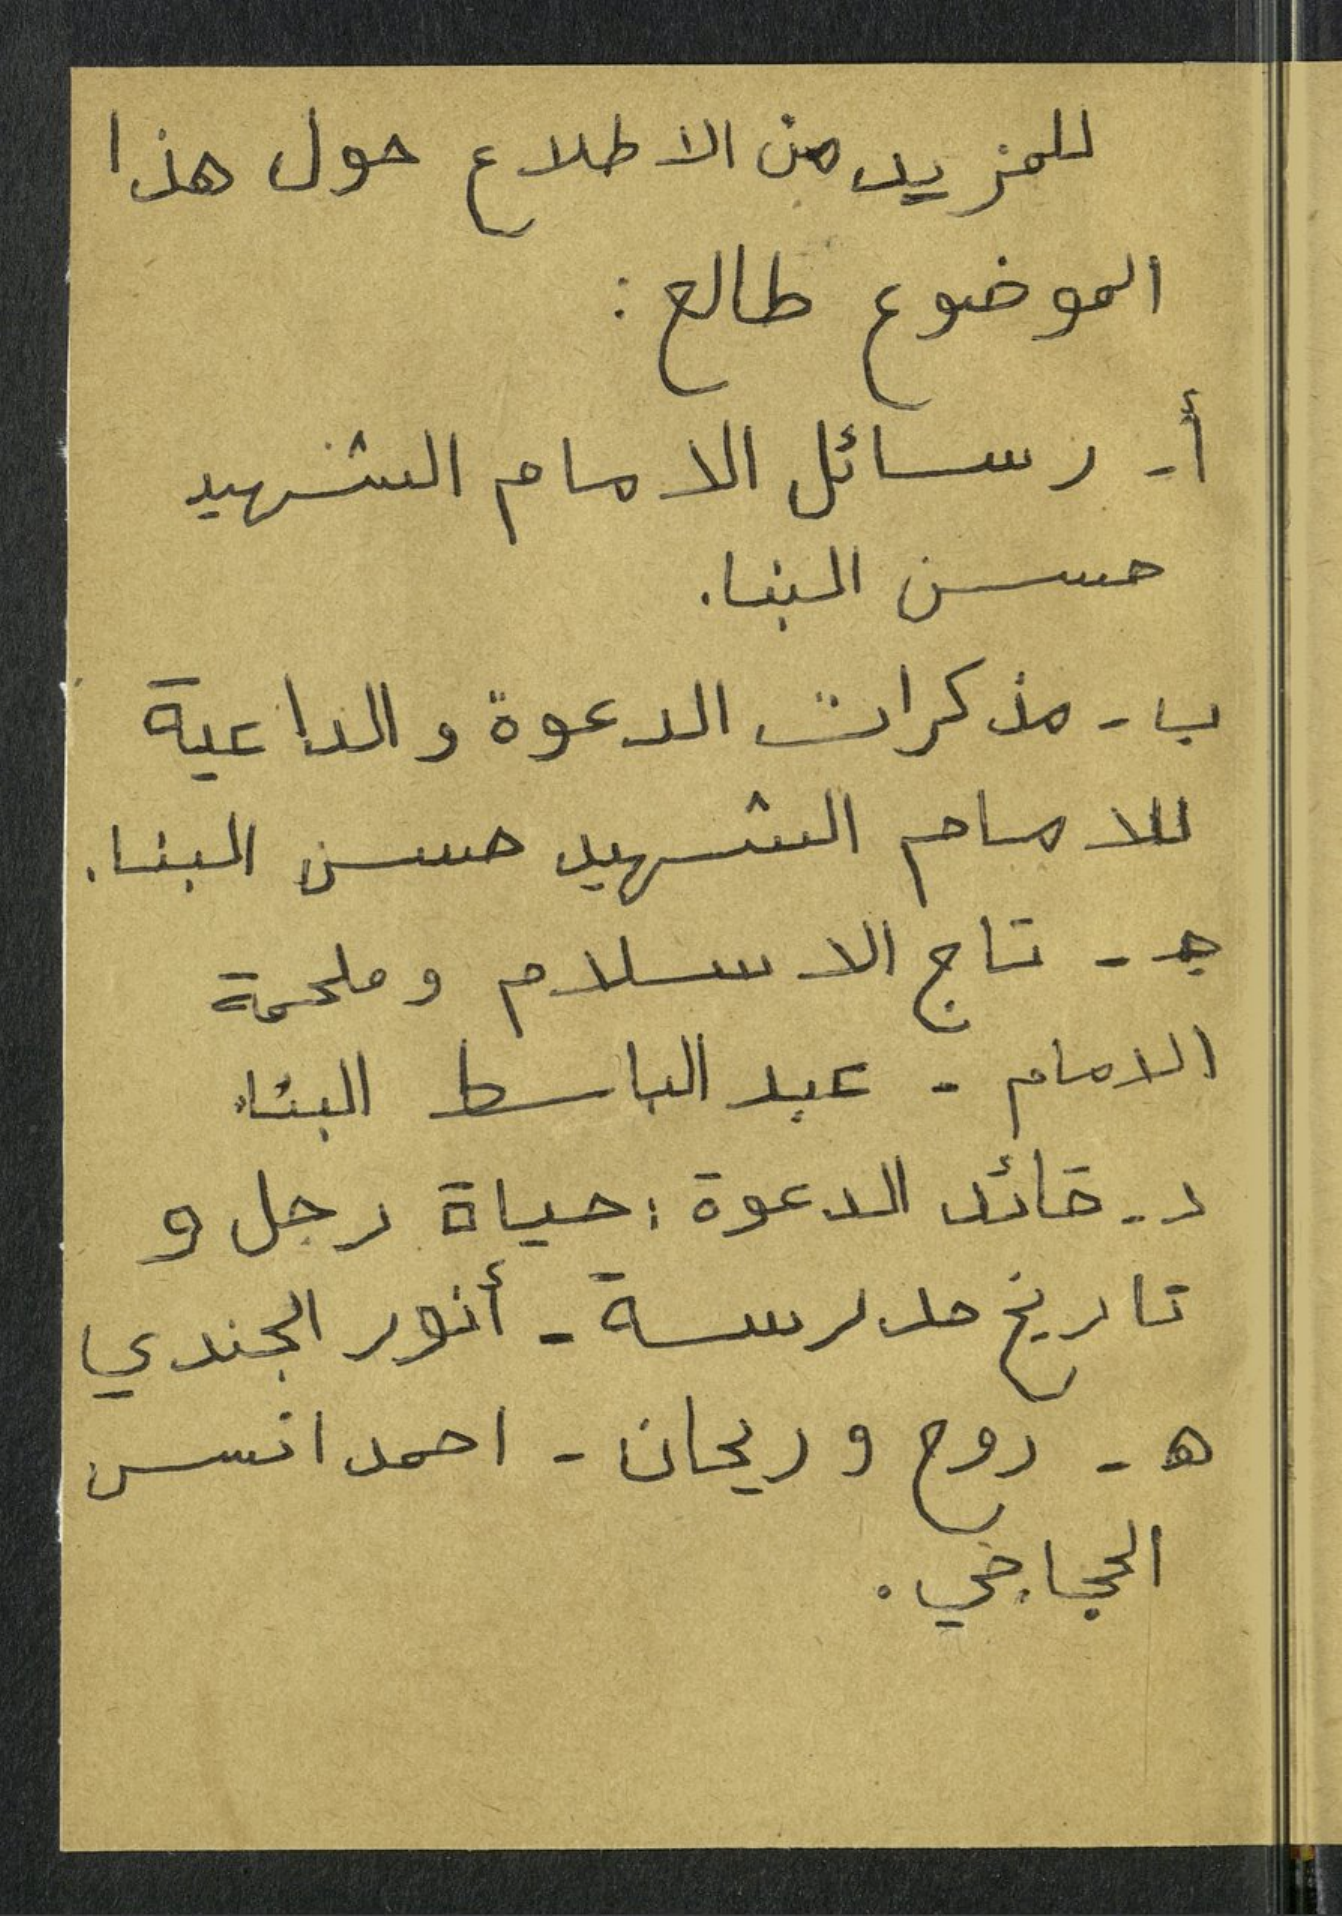 للمزيد من الاطلاع حول هذا
الموضوع طالع :
أ- رسائل الامام الشهيد
حسن البنا.
ب - مذكرات الدعوة و الداعية
للامام الشهيد حسن البنا.
جـ - تاج الاسلام و ملحمة
الامام - عبد الباسط البنا.
د - قائد الدعوة : حياة رجل و
تاريخ مدرسة - أنور الجندي
هـ - روح و ريحان - احمد انس
الحجاجي .